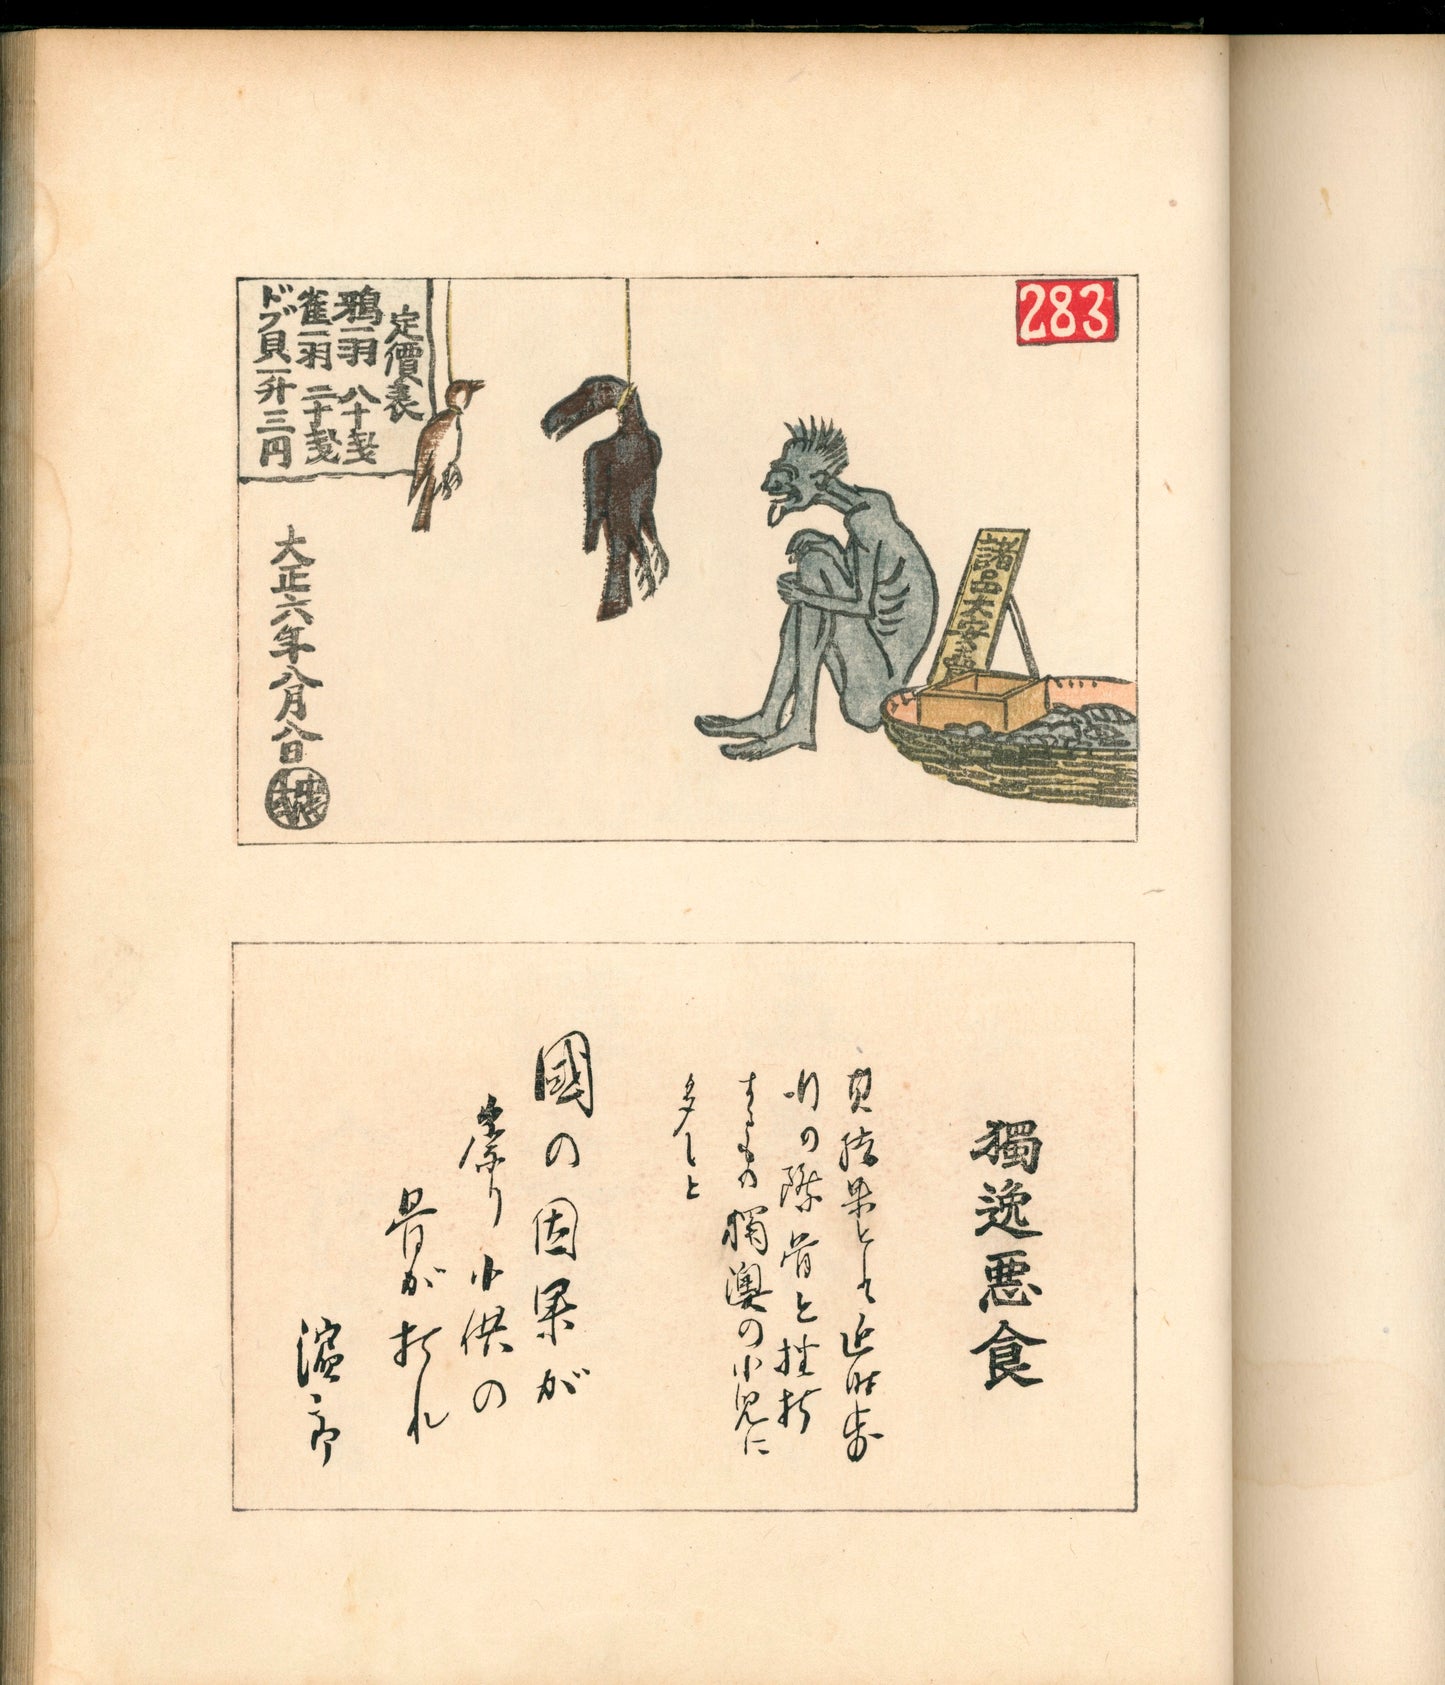 283
諸品大安賣
定價表
鴉一羽 八十戔
雀一羽 二十戔
ドブ貝一升三円
大正六年八月八日
獨逸悪食
其結果として近時歩
行の際骨を挫折
するもの獨澳の小児に
多しと
國の因果が
祟り小供の
骨が折れ